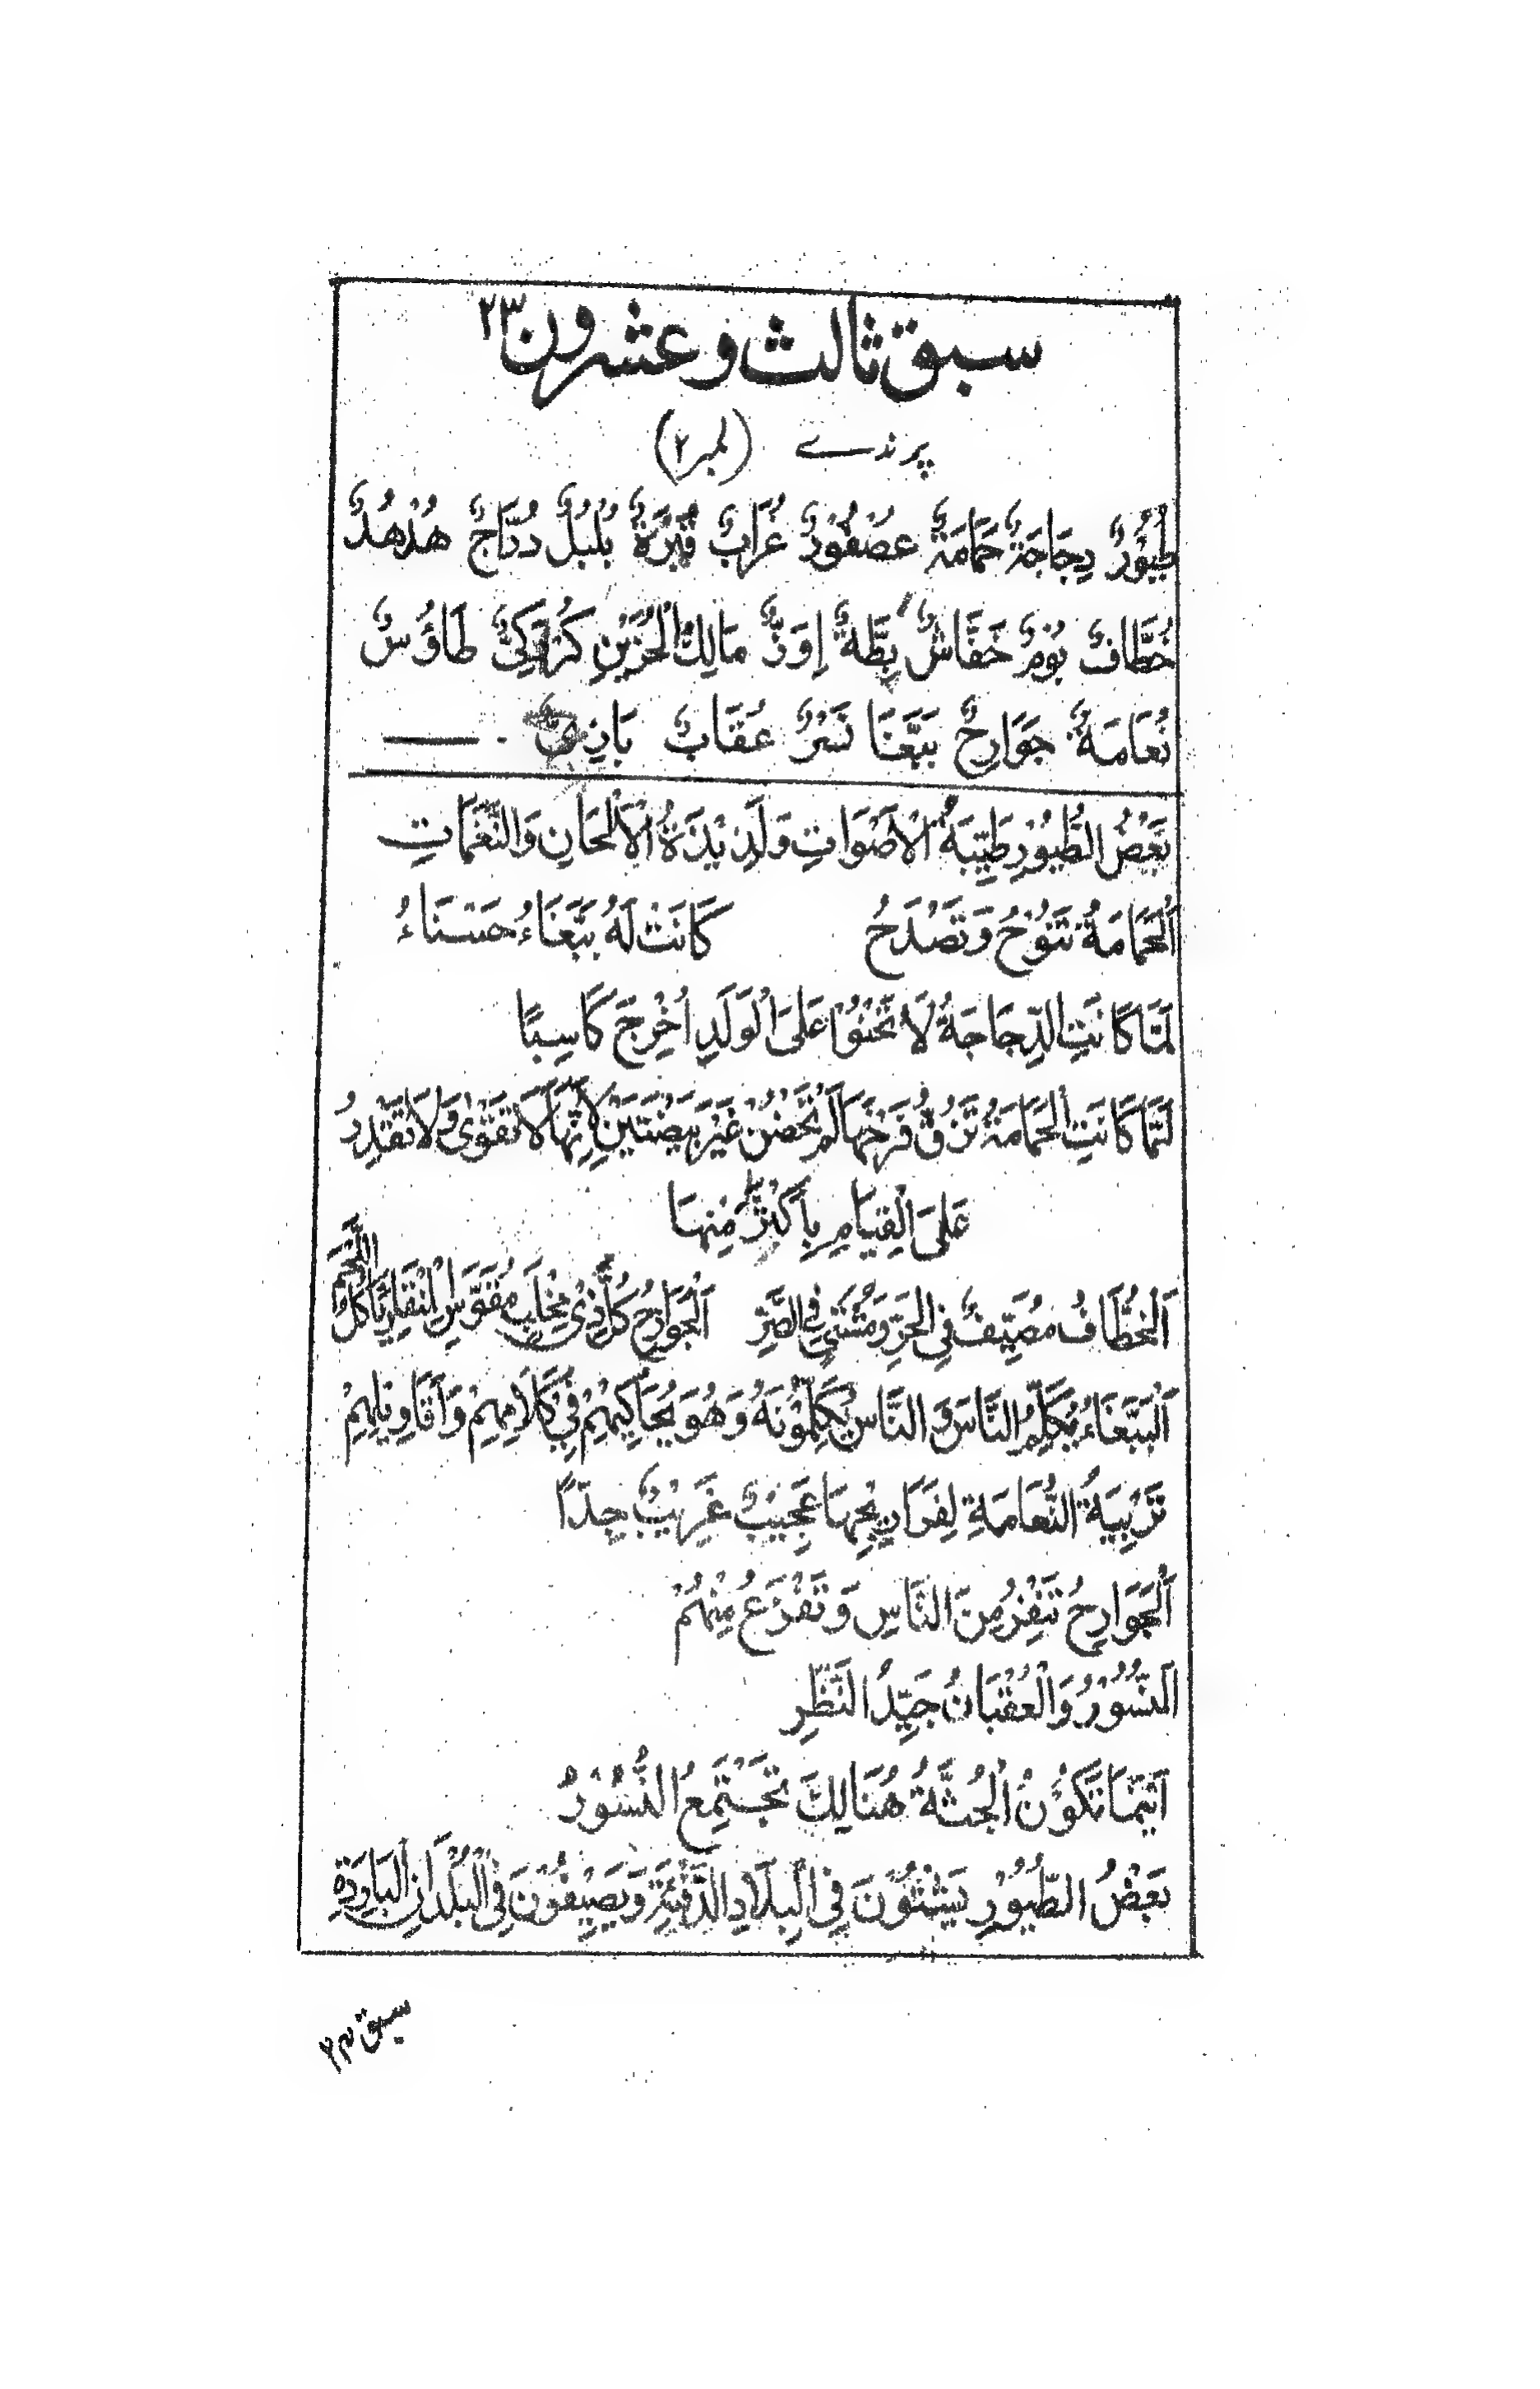 سبق ثالث وعشرون ۲۳
پرندے (نمبر ۲)
طُيُوْرٌ دِجَاجَةٌ حَمَامَةٌ عصْفُوْرٌ غُرَابٌ قُبَّرَةٌ بُلْبُلٌ دُرَّاجٌ هُدْهُدٌ
خُطَّافٌ بُوْمٌ خَفَّاشٌ بِطَّةٌ اِوَزٌّ مَالِكُ الْحُزَيْنِ كُرَاكِيٌّ طَاؤُسٌ
نُعَامَةٌ جَوَارِحٌ بَبَّغَا نَسْرٌ عُقَابٌ بَازِيٌّ ـ
بَعْضُ الطُّيُوْرِ طَيِّبَةُ الْاَصْوَاتِ وَلَذِيْذَةُ الْاَلْحَانِ وَالنَّغَمَاتِ
اَلْحَمَامَةُ تَنُوْحُ وَتَصْدَحُ كَانَتْ لَهُ بَبَّغَاءُ حَسَنَاءُ
لَمَّا كَانَتِ الدِّجَاجَةُ لَا تَحْنُوْا عَلَى الْوَلَدِ اُخْرِجَ كَاسِبًا
لَمَّا كَانَتِ الْحَمَامَةُ تَزُقُّ فَرْخَهَا لَمْ تَحْضُنْ غَيْرَ بَيْضَتَيْنِ لِاَنَّهَا لَا تَقْوٰى وَلَا تَقْدِرُ
عَلَى الْقِيَامِ بِاَكْثَرَ مِنْهَا
اَلْخُطَّافُ مُصَيِّفٌ فِي الْحَرِّ وَمُشَتِّي فِي الصَّرِّ اَلْجَوَارِحُ كُلُّ ذِيْ مِخْلَبٍ مُقَوَّسِ الْمِنْقَارِ يَاكُلُ اللَّحْمَ
اَلْبَبَّغَاءُ يُكَلِّمُ النَّاسَ وَالنَّاسُ يُكَلِّمُوْنَهُ وَهُوَ يُحَاكِيْهِمْ فِيْ كَلَامِهِمْ وَاَقَاوِيْلِهِمْ
تَرْبِيَةُ النُّعَامَةِ لِفَرَارِيْجِهَا عَجِيْبٌ غَرِيْبٌ جِدًّا
اَلْجَوَارِحُ تَنْفِرُ مِنَ النَّاسِ وَتَفْزَعُ مِنْهُمْ
اَلنُّسُوْرُ وَالْعُقْبَانُ جَيِّدُ النَّظْرِ
اَيْنَمَا تَكُوْنُ الْجُثَّةُ هُنَالِكَ تَجْتَمِعُ النُّسُوْرُ
بَعْضُ الطُّيُوْرِ يَشْتُوْنَ فِي الْبِلَادِ الدَّفِئَةِ وَيَصِيْفُوْنَ فِي الْبُلْدَانِ الْبَارِدَةِ
سبق ۲۴